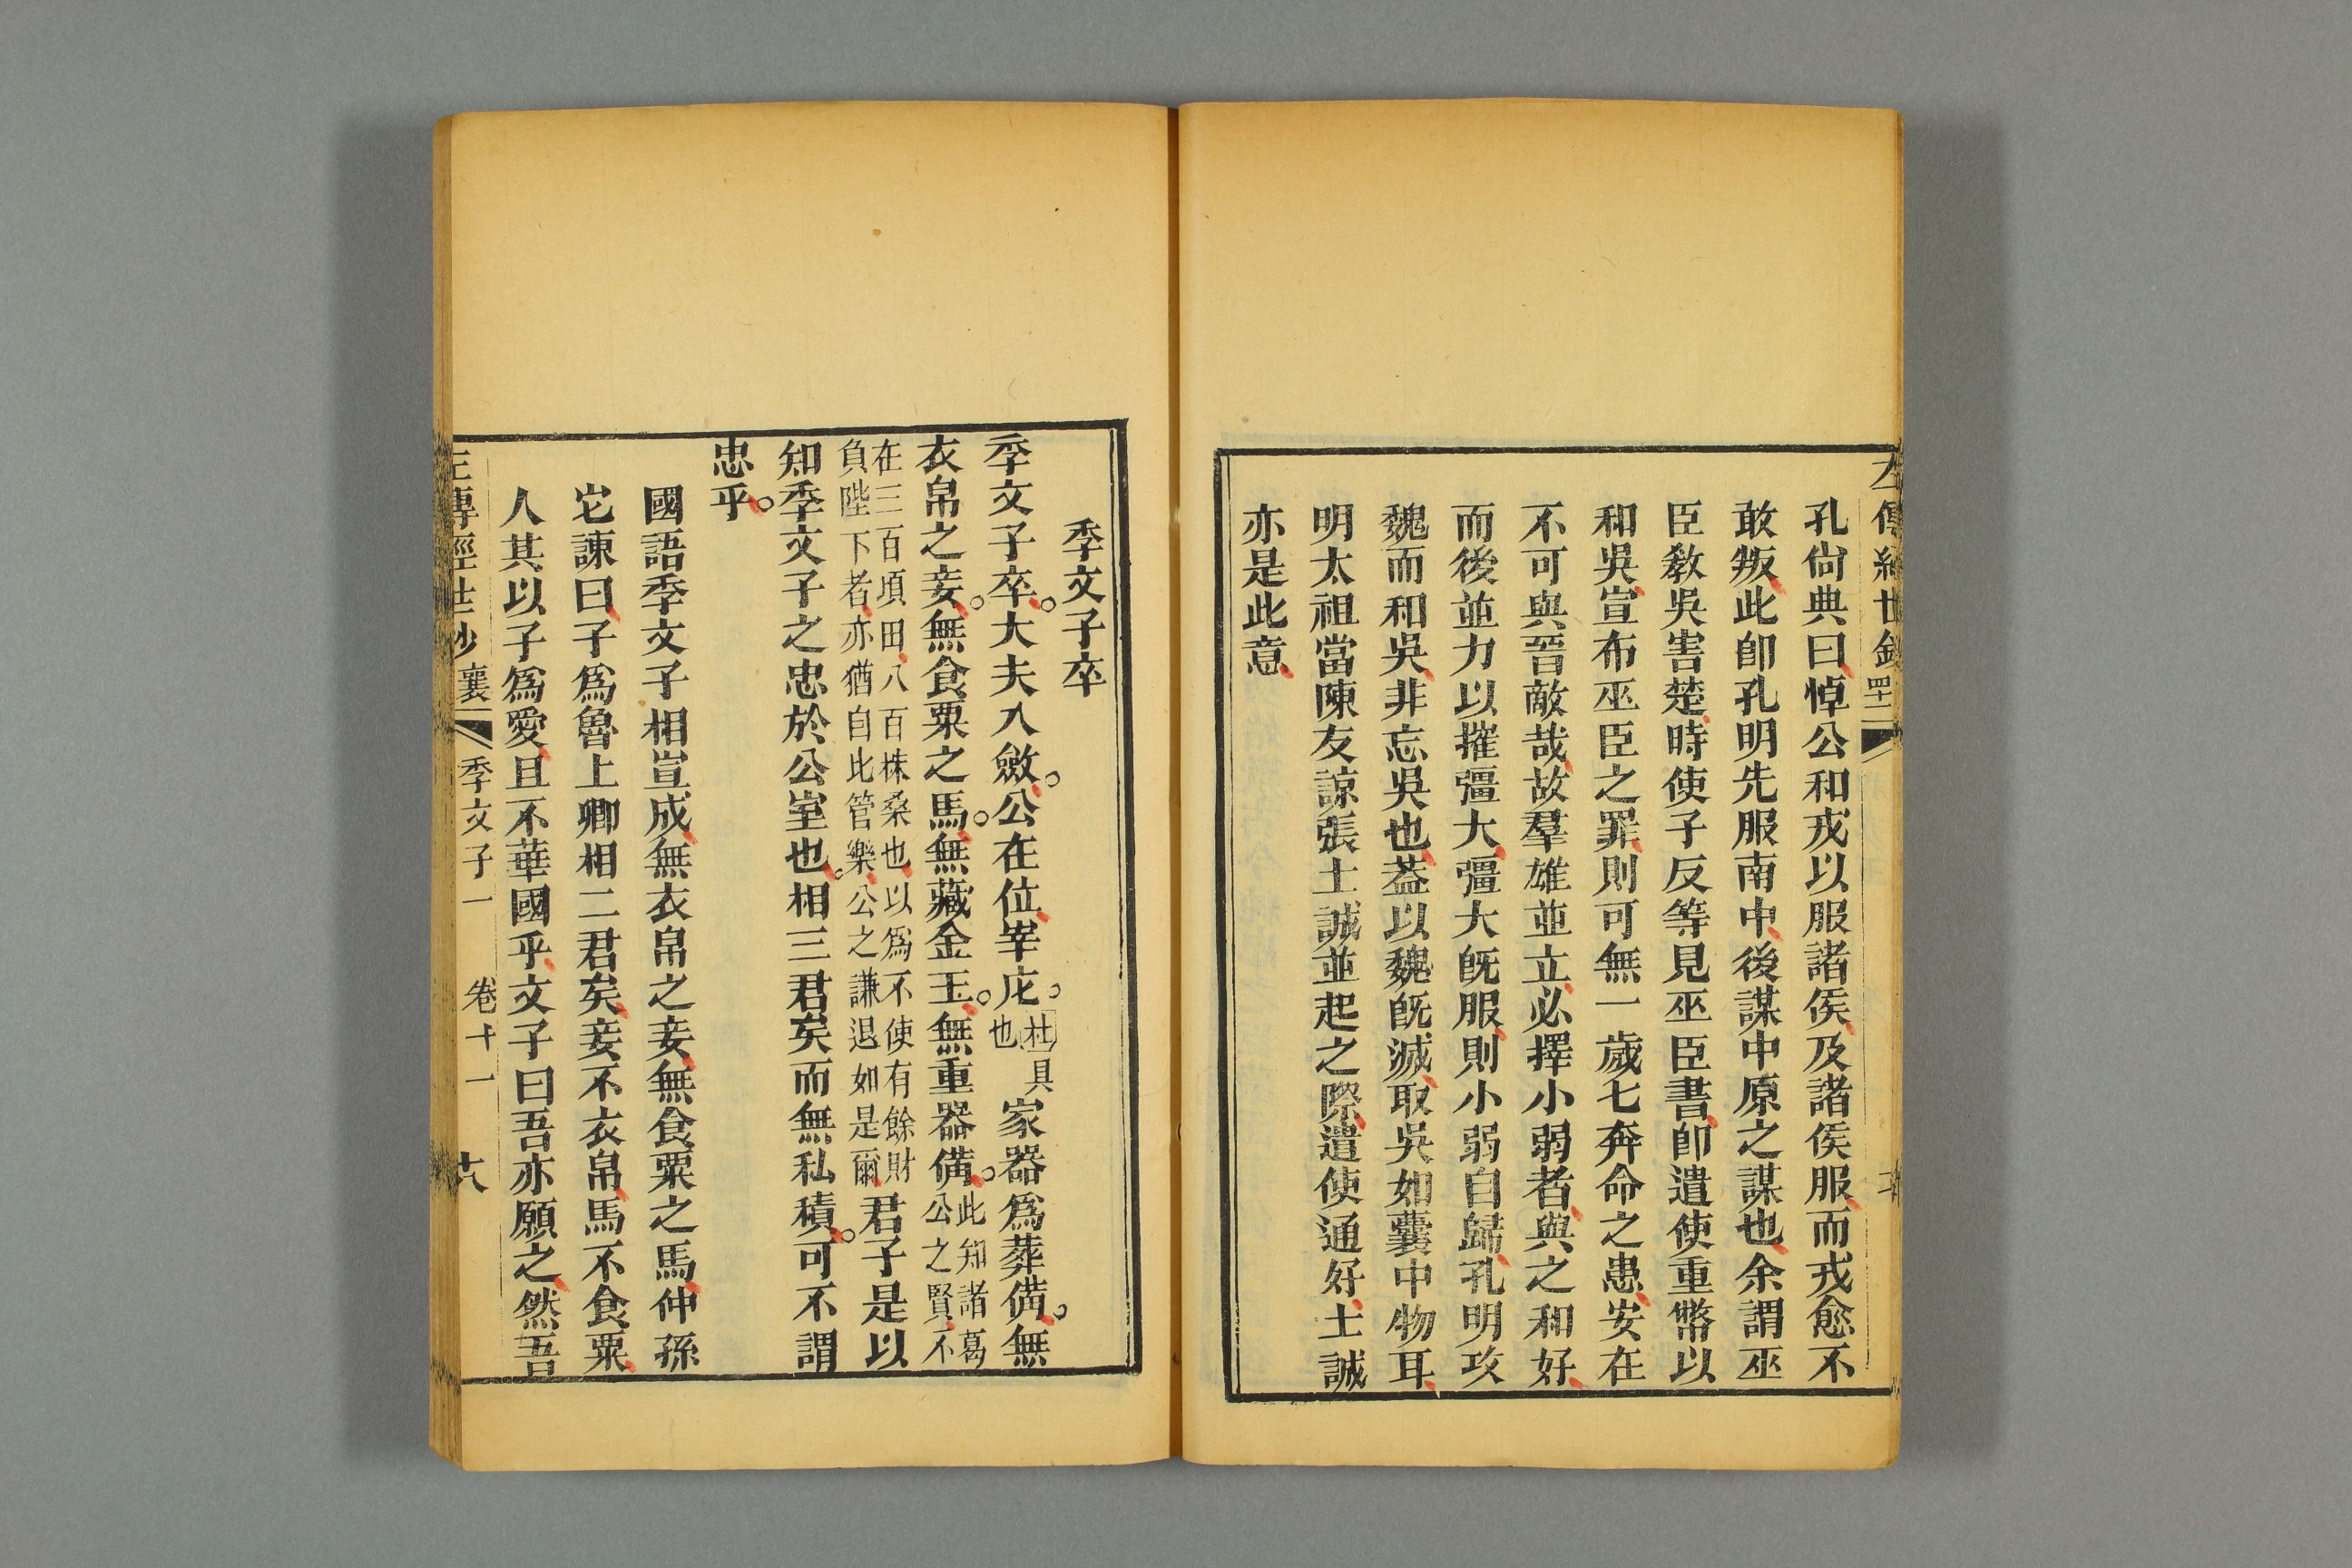 孔尙典曰悼公和戎以服諸侯及諸侯服而戎愈不
敢叛此卽孔明先服南中後謀中原之謀也余謂巫
臣教吳害楚時使子反等見巫臣書卽遣使重幣以
和吳宣布巫臣之罪則可無一歲七奔命之患安在
不可與晉敵哉故羣雄並立必擇小弱者與之和好
而後並力以摧彊大彊大既服則小弱自歸孔明攻
魏而和吳非忘吳也葢以魏既滅取吳如囊中物耳
明太祖當陳友諒張士誠並起之際遣使通好士誠
亦是此意
季文子卒
季文子卒大夫入斂公在位宰庀
杜具
也
家器爲葬備無
衣帛之妾無食粟之馬無藏金玉無重器備
此知諸葛
公之賢不
在三百頃田八百株桑也以爲不使有餘財
負陛下者亦猶自比管樂公之謙退如是爾
君子是以
知季文子之忠於公室也相三君矣而無私積可不謂
忠乎
國語季文子相宣成無衣帛之妾無食粟之馬仲孫
它諫曰子爲魯上卿相二君矣妾不衣帛馬不食粟
人其以子爲愛且不華國乎文子曰吾亦願之然吾
左傳經世鈔 襄 季文子一 卷十一 十八